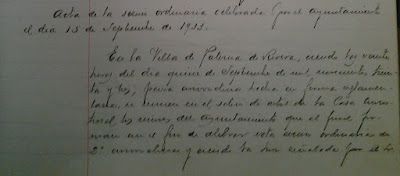 Acta de la sesion ordinaria celebrada por el ayuntamiento
el dia 15 de Septiembre de 1933.
En la Villa de Paterna de Rivera, siendo las veinte
horas del dia quince de Septiembre de mil novecientos trein-
ta y tres, previa convocatoria hecha en forma reglamen-
taria, se reunen en el salon de actos de la Casa Consis-
torial los señores del Ayuntamiento que al final fir-
man con el fin de celebrar esta sesion ordinaria de
2ª convocatoria y siendo la hora señalada por el Sr